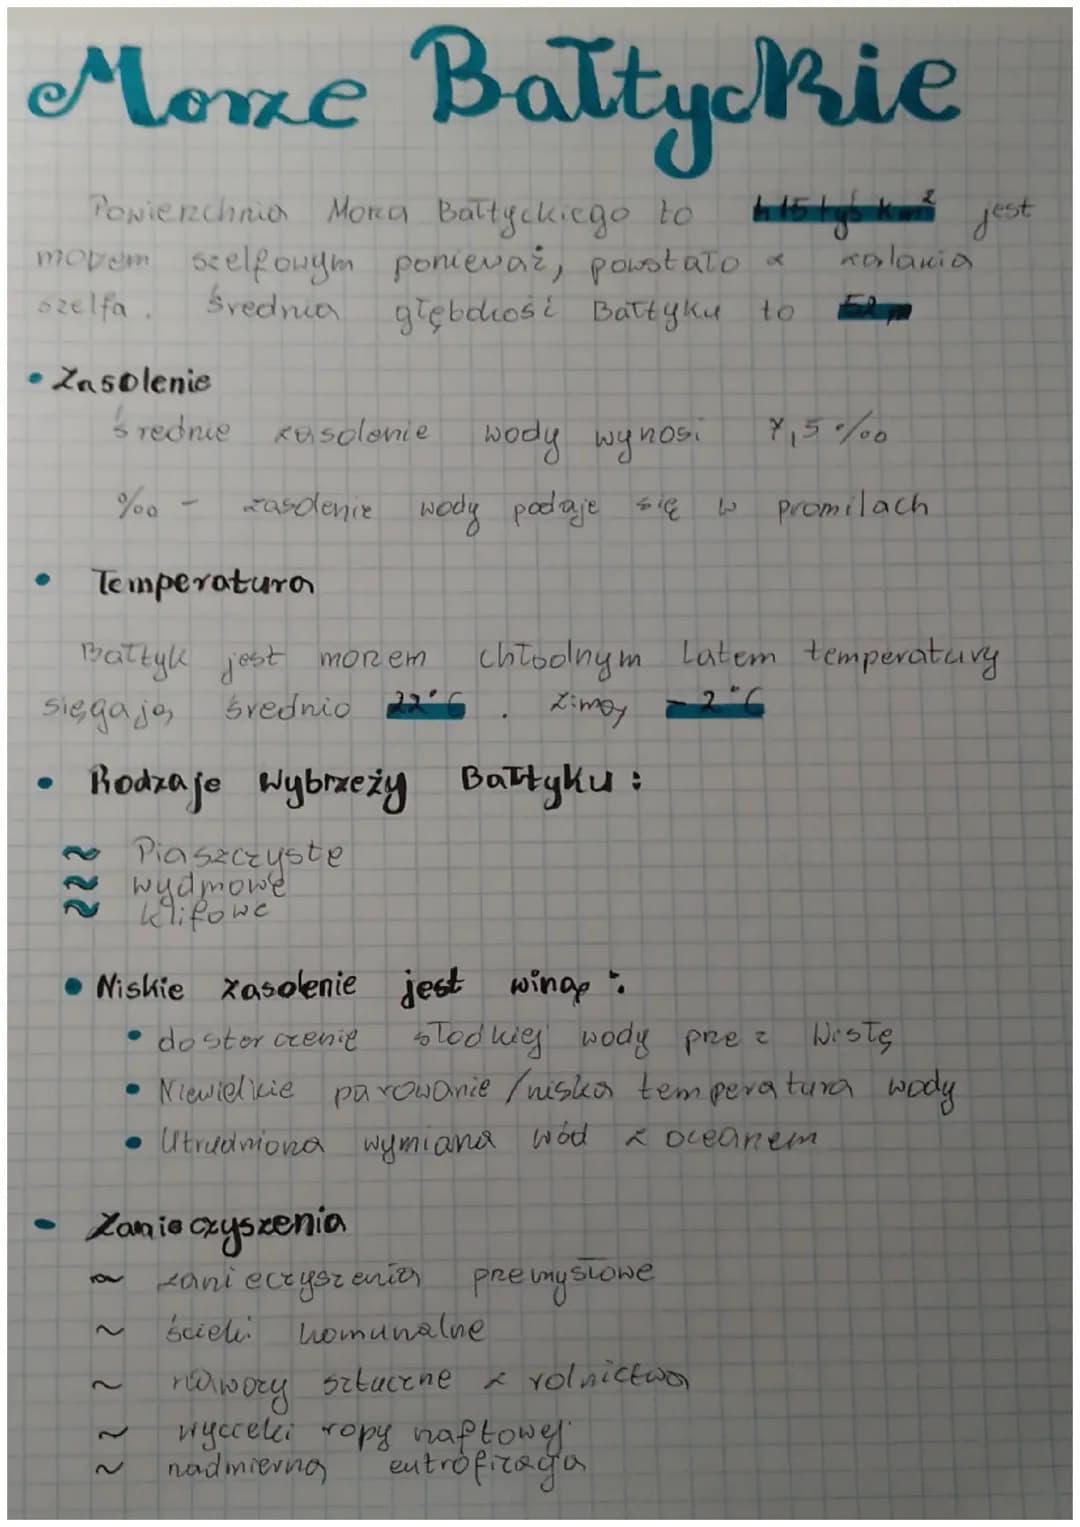 Morze Bałtyckie
Powierzchnia Morza Bałtyckiego to 415 tyś km² jest
morzem szelfowym ponieważ, powstało z zalania
szelfa. Średnia głębokość Bałtyku to 52 m
• Zasolenie
średnie zasolenie wody wynosi 7,5 ‰
‰ - zasolenie wody podaje się w promilach
• Temperatura
Bałtyk jest morzem chłodnym Latem temperatury
sięgają średnio 22°C. Zimą -2°C
• Rodzaje wybrzeży Bałtyku:
~ Piaszczyste
~ wydmowe
~ klifowe
• Niskie zasolenie jest winą:
• dostarczenie słodkiej wody przez Wisłę
• Niewielkie parowanie /niska temperatura wody
• Utrudniona wymiana wód z oceanem
• Zanieczyszenia
~ zanieczyszenia przemysłowe
~ ścieki komunalne
~ nawozy sztuczne z rolnictwa
~ wycieki ropy naftowej
~ nadmierna eutrofizacja